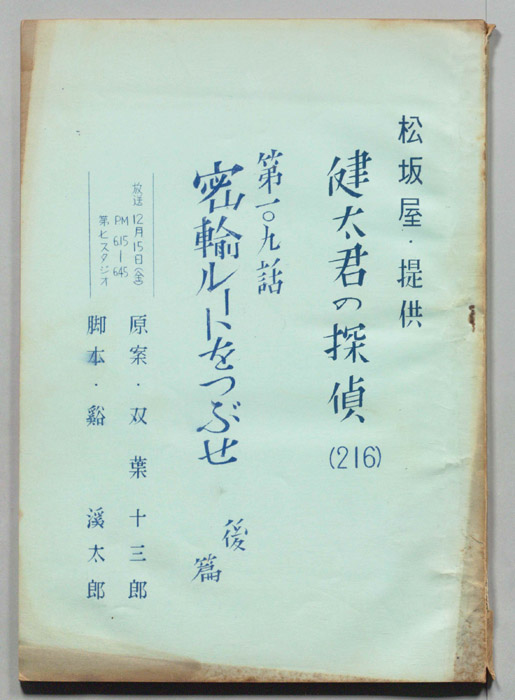 松坂屋・提供
健太君の探偵
(216)
第一〇九話
密輸ルートをつぶせ
後篇
放送 12月15日(金)
PM 615―645
第七スタジオ
原案・双葉十三郎
脚本・谿渓太郎